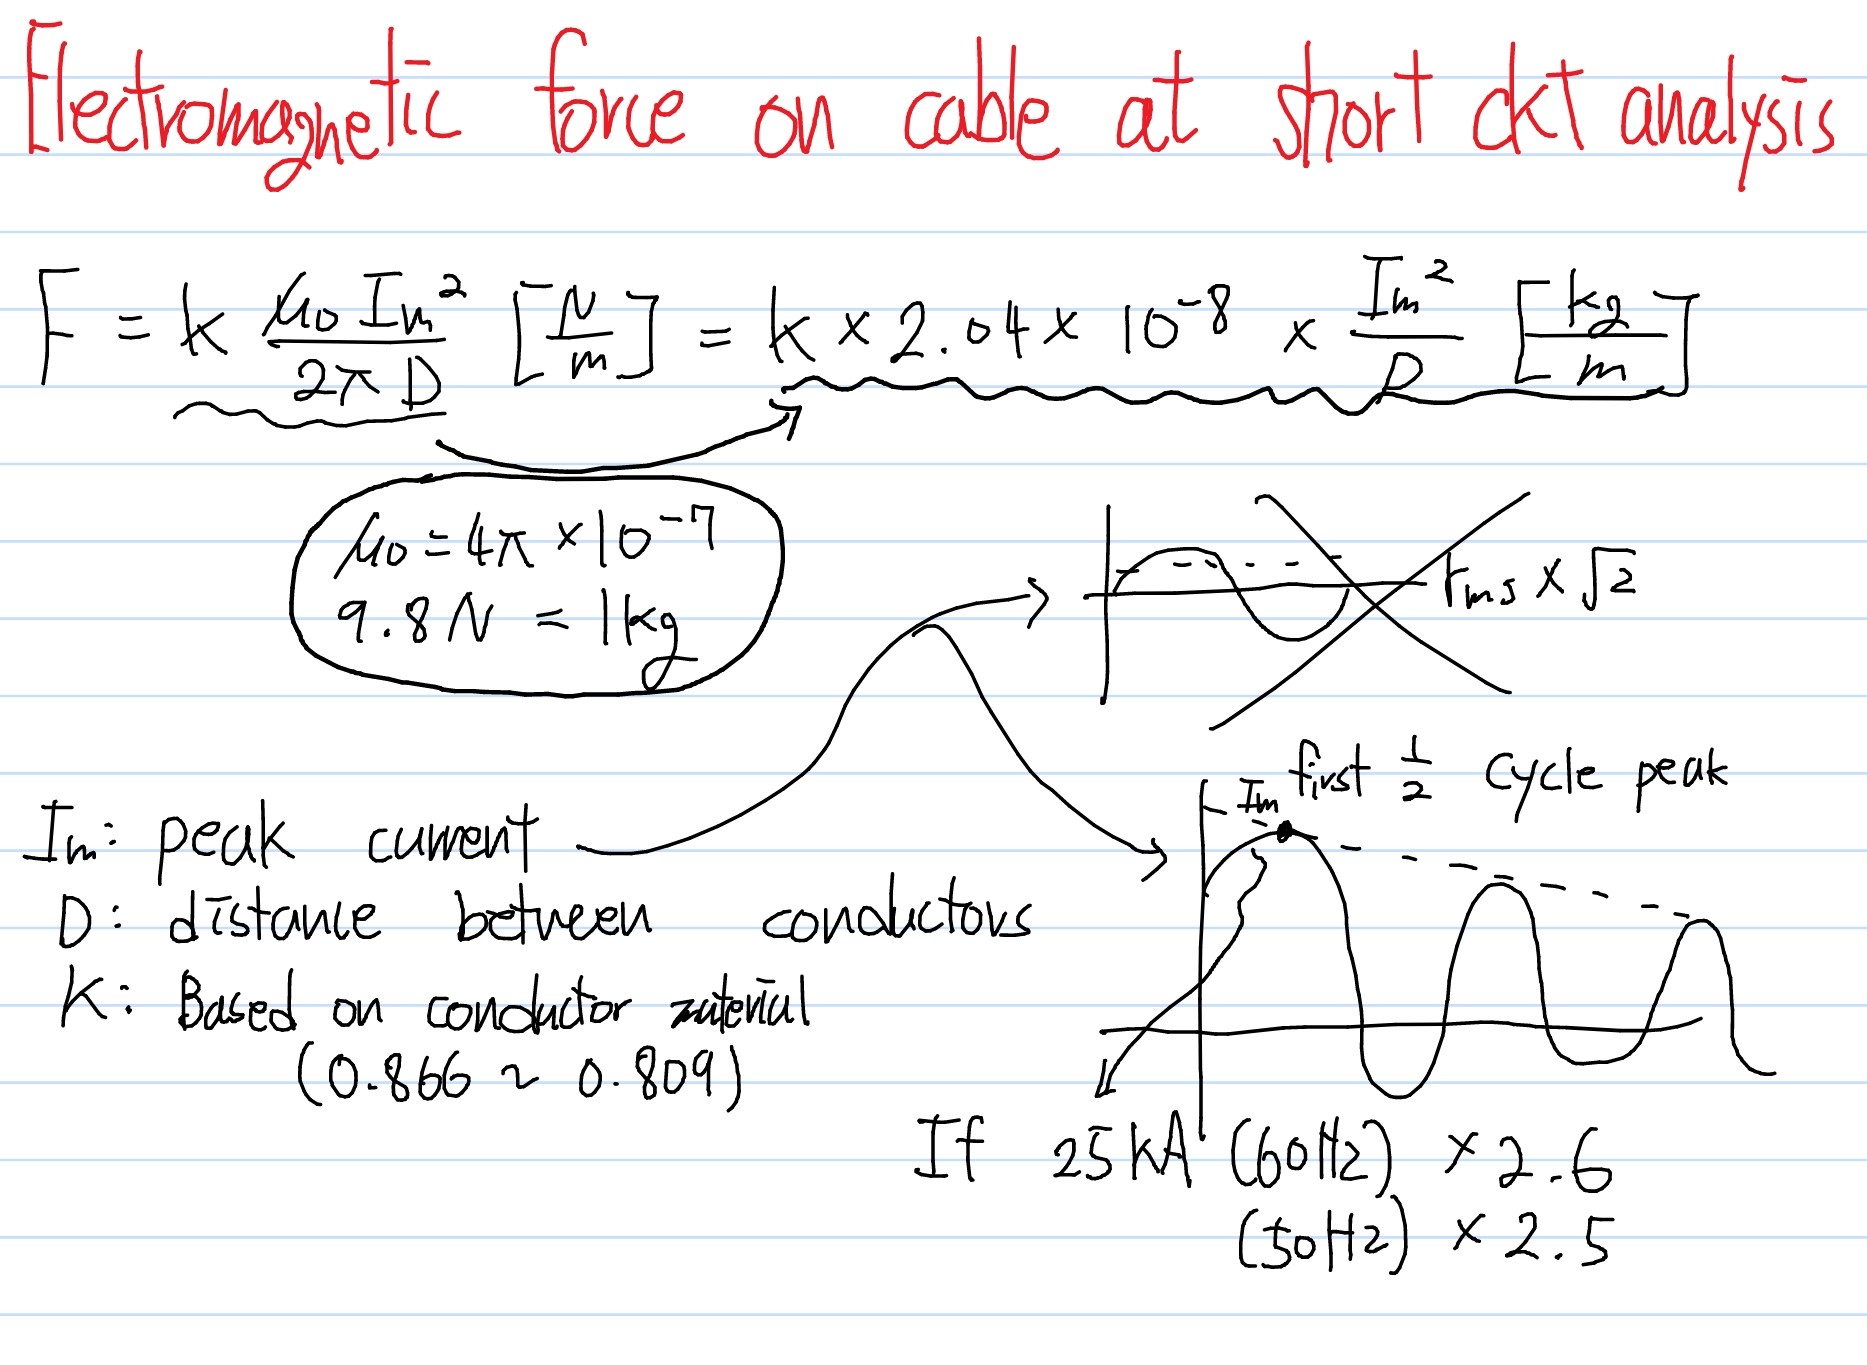 Electromagnetic force on cable at short ckt analysis
F = k μ₀ Im² / 2π D [N/m] = k × 2.04 × 10⁻⁸ × Im² / D [kg/m]
μ₀ = 4π × 10⁻⁷
9.8 N = 1kg
rms × √2
first 1/2 cycle peak
Im
Im: peak current
D: distance between conductors
K: Based on conductor material
(0.866 ~ 0.809)
If 25kA (60Hz) × 2.6
(50Hz) × 2.5